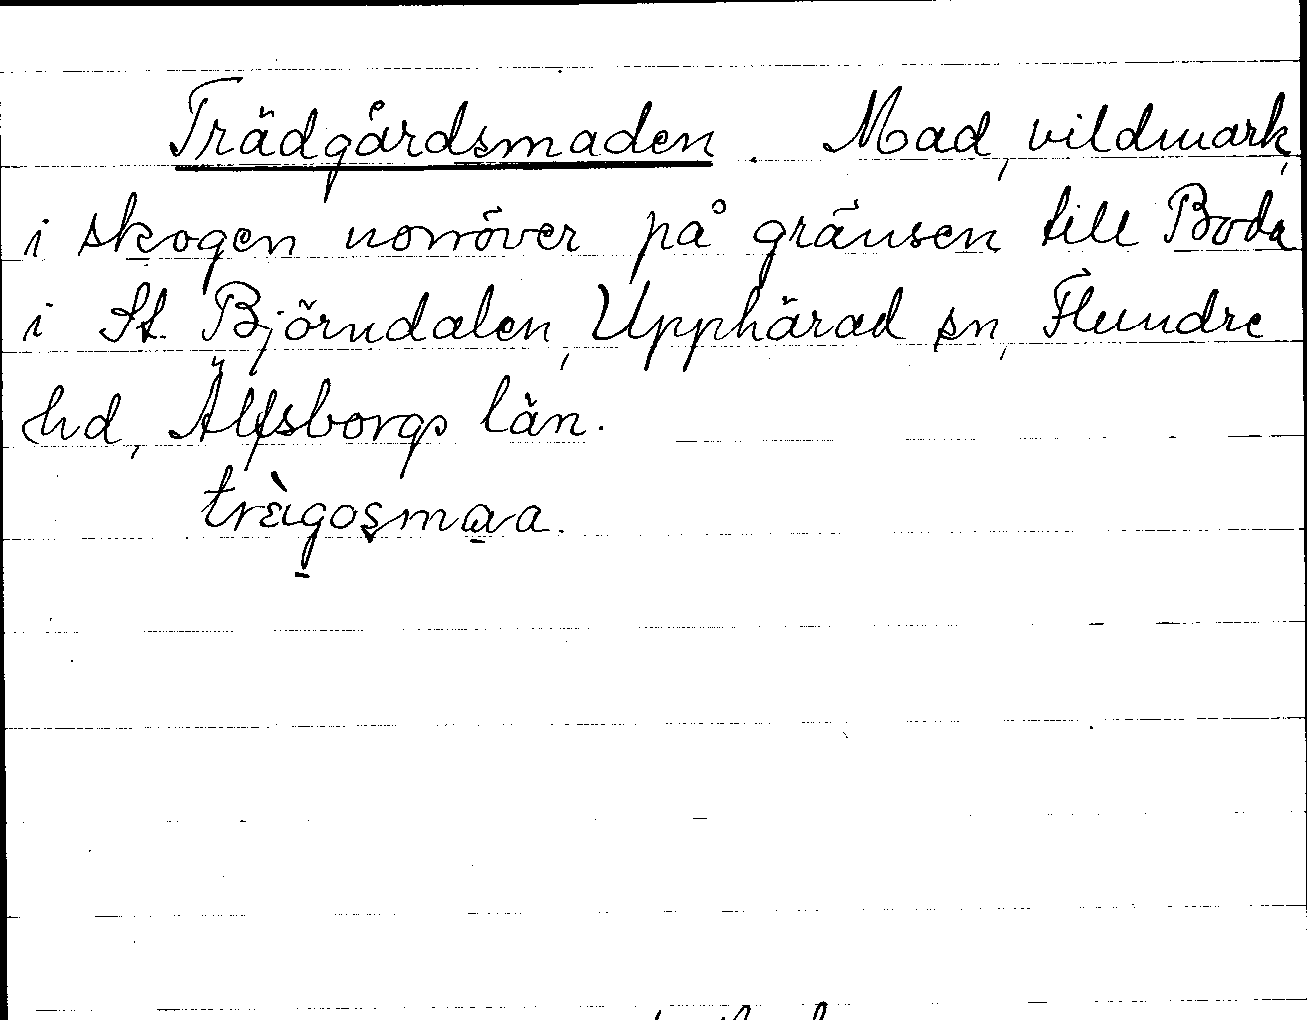 Trädgårdsmaden. Mad, vildmark,
i skogen norröver på gränsen till Boda
i St. Björndalen, Upphärad sn, Flundre
hd, Älfsborgs län.
trὰgosmaa.